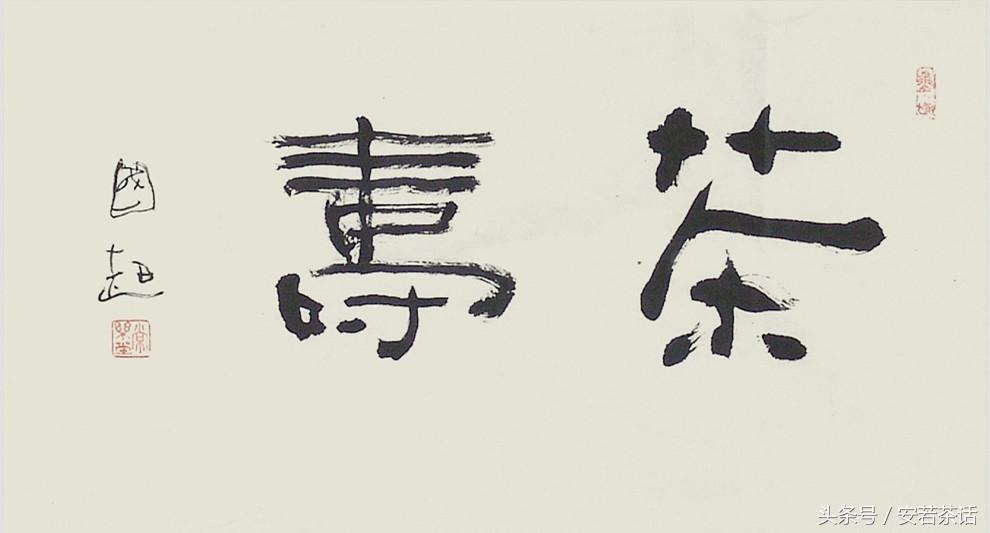 茶壽
國
头条号 / 安若茶话